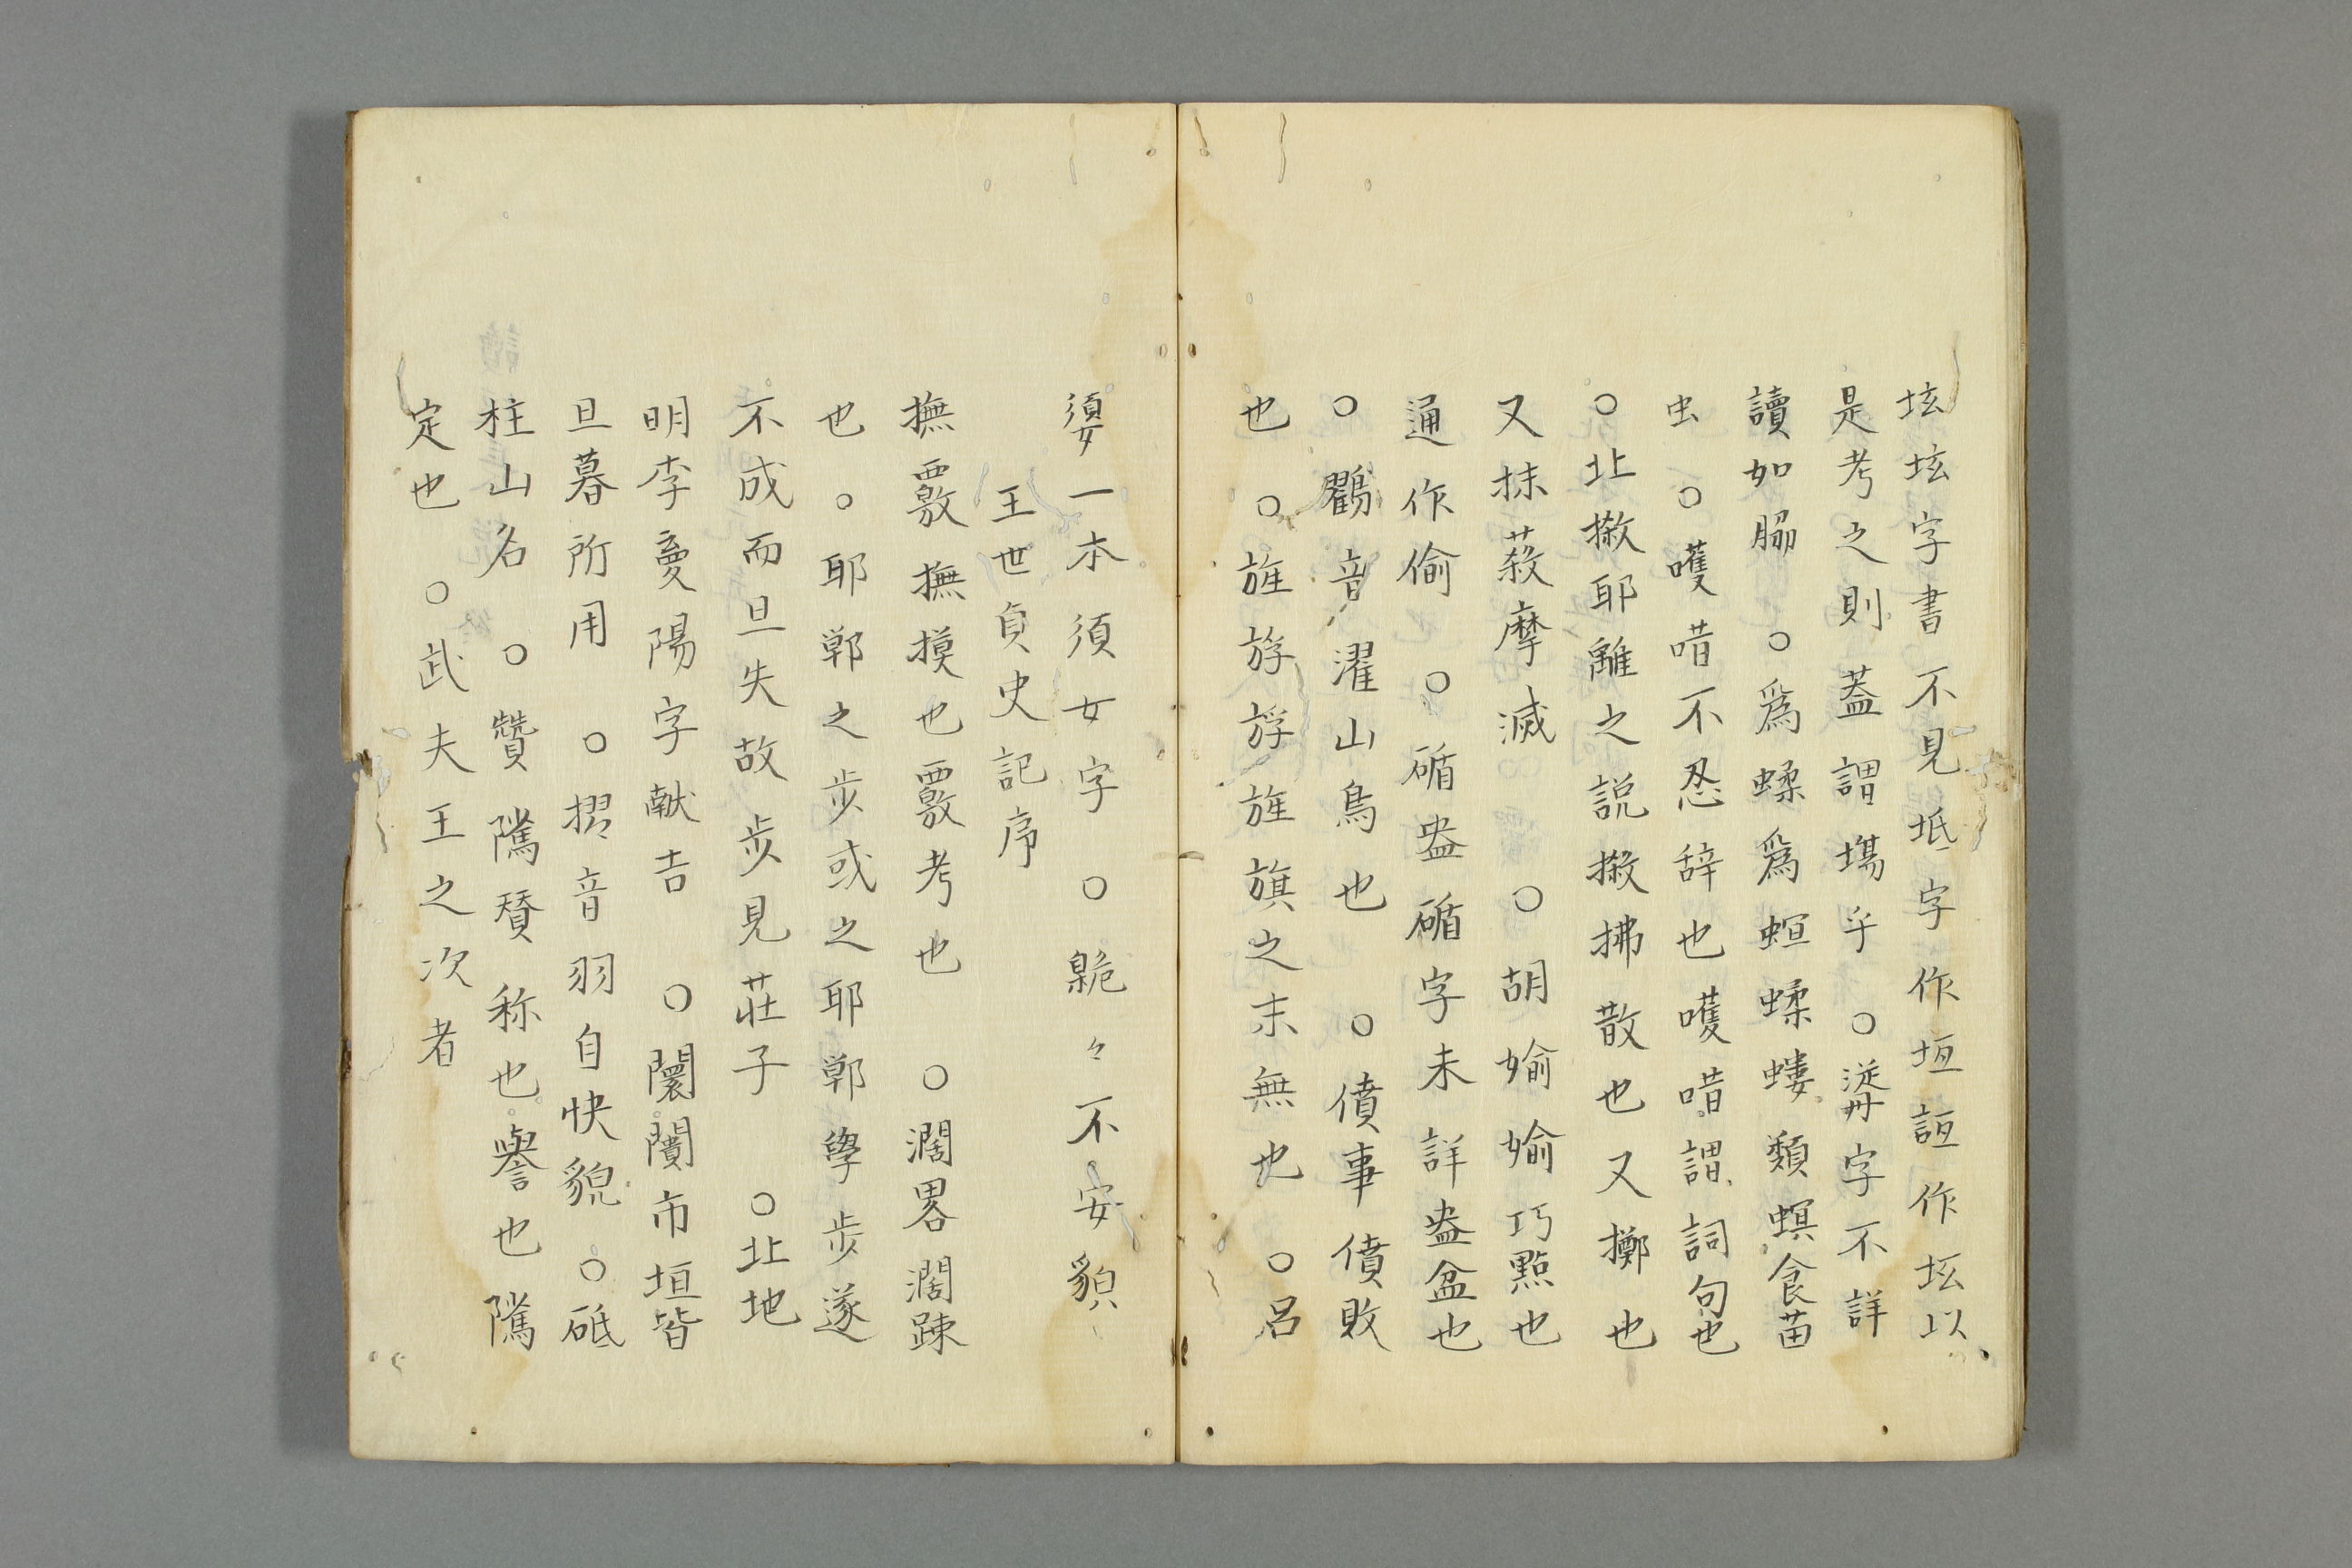 坹坹字書不見坻字作垣誙作坛以
是考之則蓋謂塲乎○字不詳
讀如脇○爲蝚爲螾蝚螻類螟食苗
虫○嚄唶不忍辞也嚄唶謂詞句也
○北撒耶離之説撒拂散也又擲也
又抹蔱摩滅○胡婾婾巧黠也
通作偷○碷盎碷字未詳盎盆也
○鸜音濯山烏也○僨事僨敗
也○旌旍旍旌旗之末無也○呂
嬃一本須女字○臲々不安貌
王世貞史記序
撫覈撫摸也覈考也○濶畧濶踈
也○耶鄲之步或之耶鄲學步遂
不成而旦失故步見莊子○北地
明李夢陽字献吉○闤闠市垣皆
旦暮所用○摺音羽自快貌○砥
柱山名○贊隲賛称也譽也隲
定也○武夫王之次者